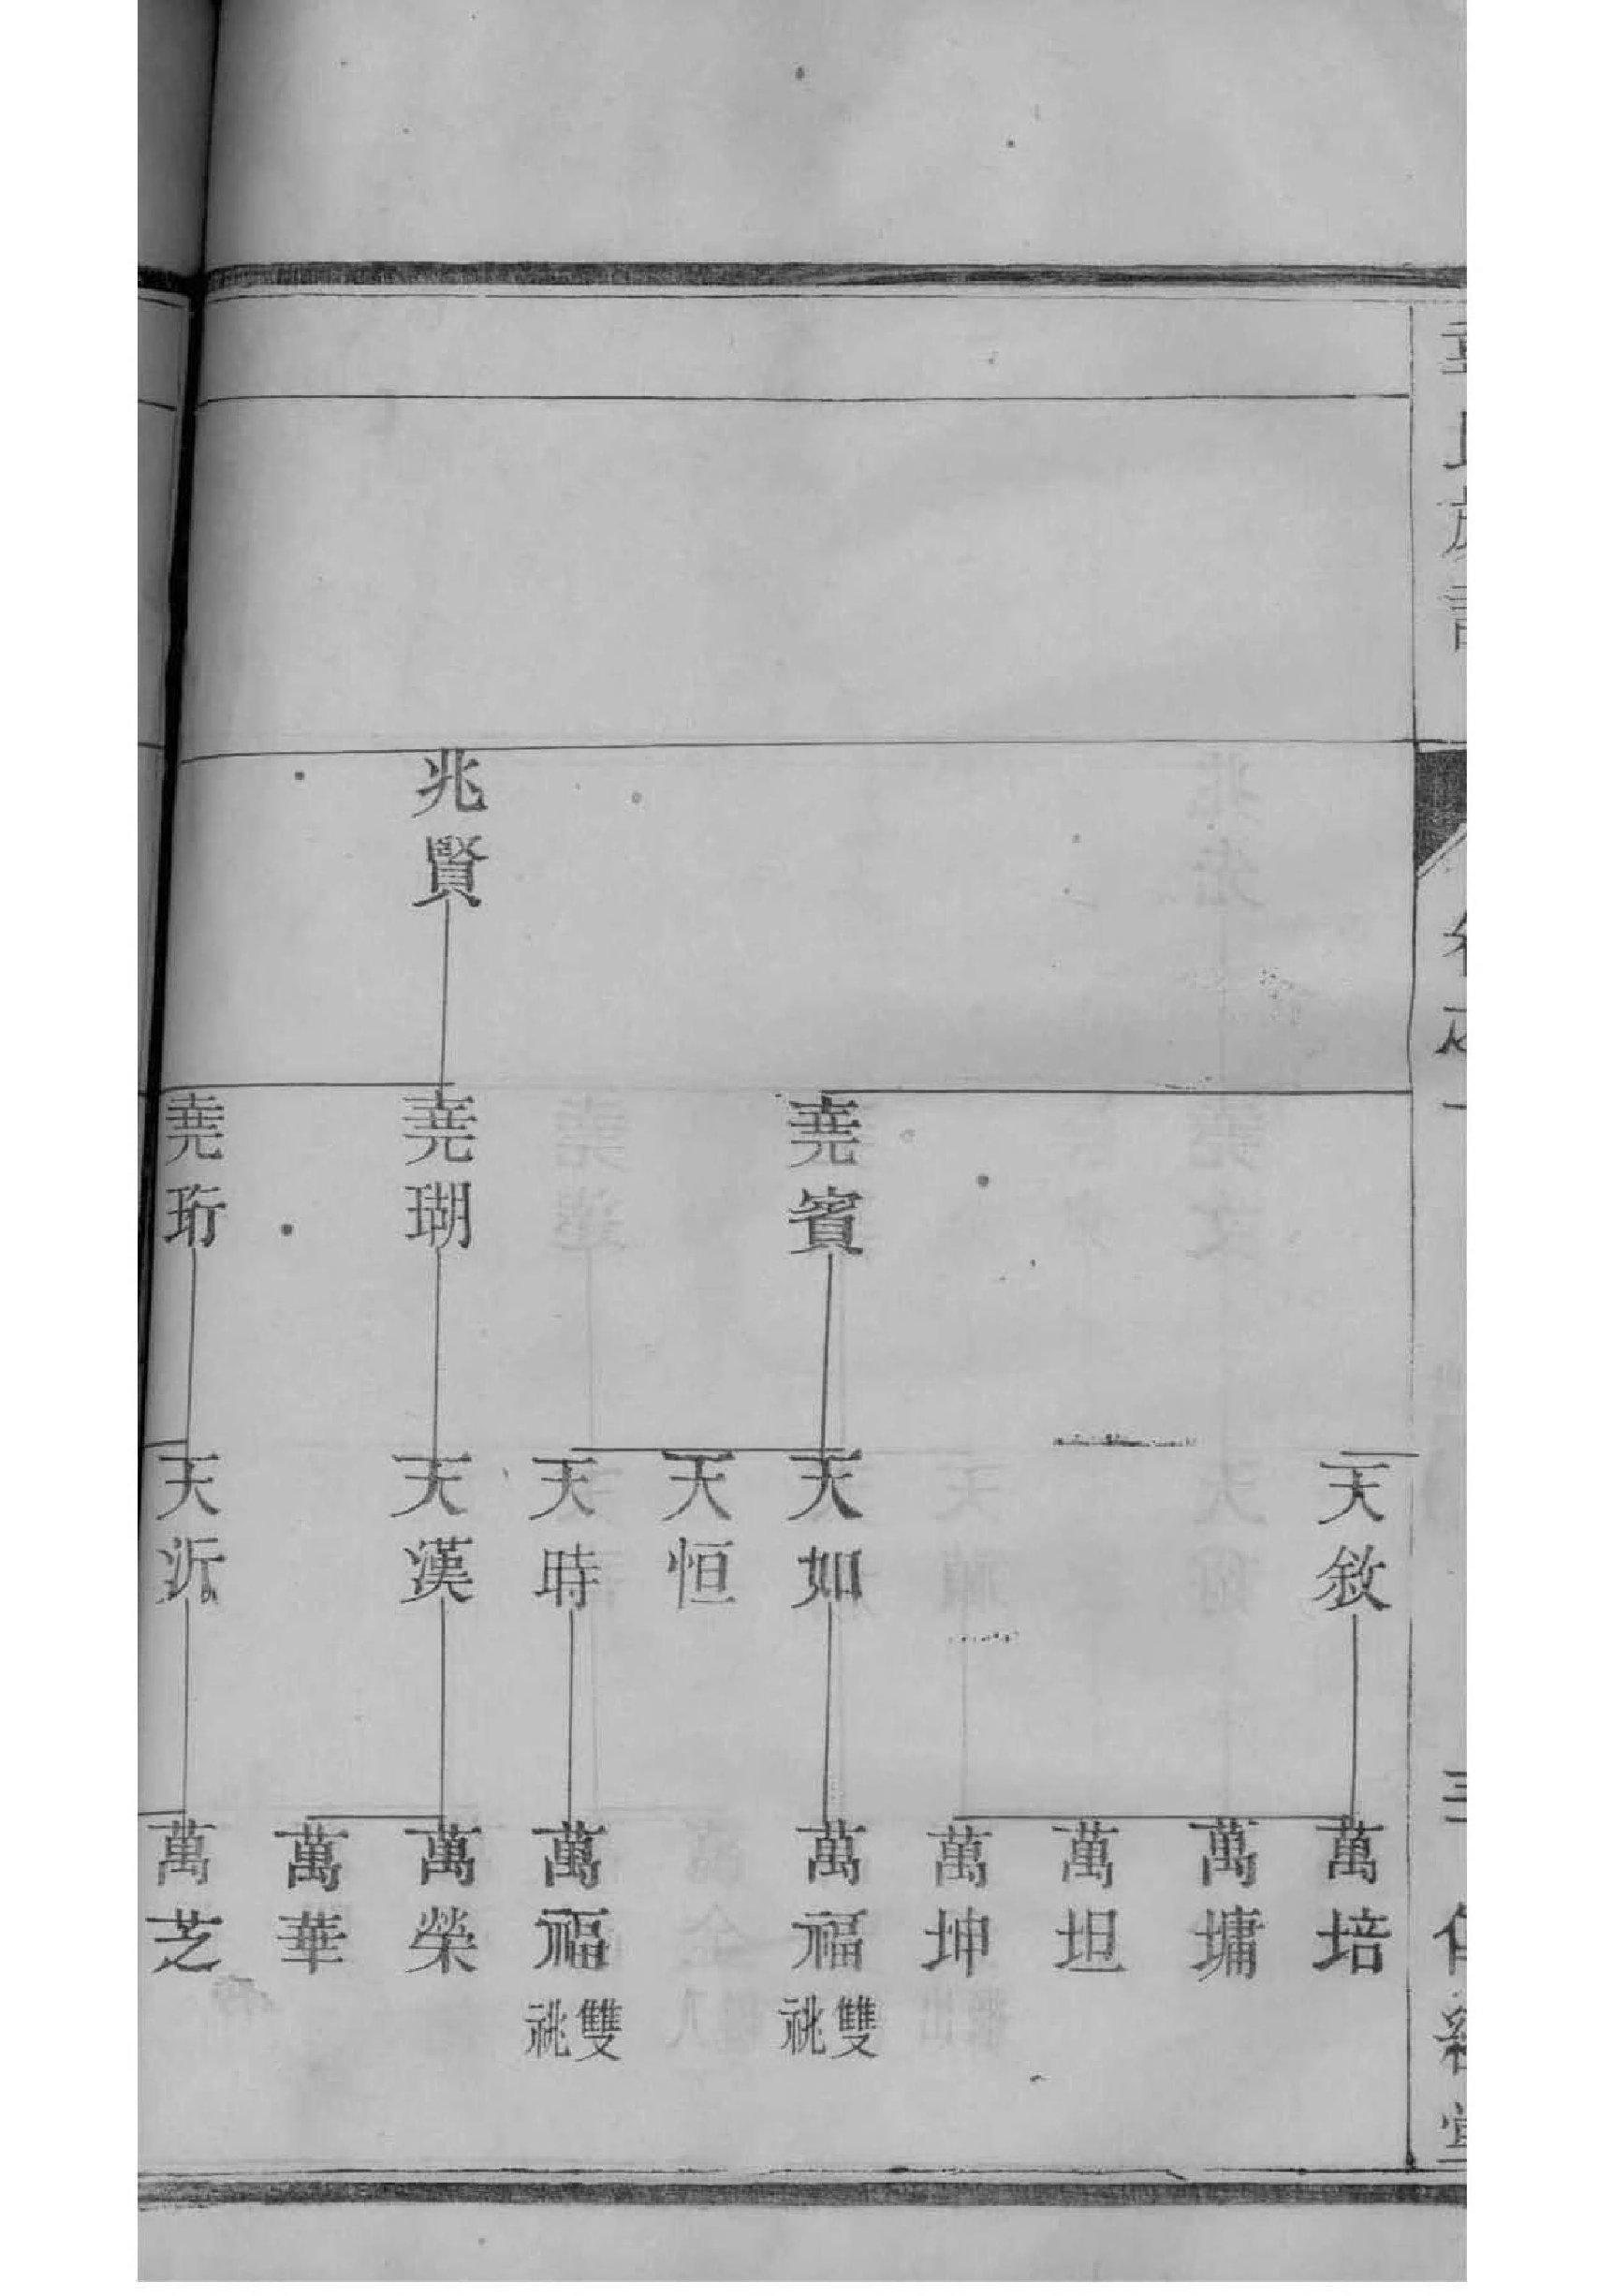 兆賢
堯賓
堯瑚
堯珩
天敘
天如
天恒
天時
天漢
天沂
萬培
萬墉
萬坦
萬坤
萬福 雙祧
萬福 雙祧
萬榮
萬華
萬芝